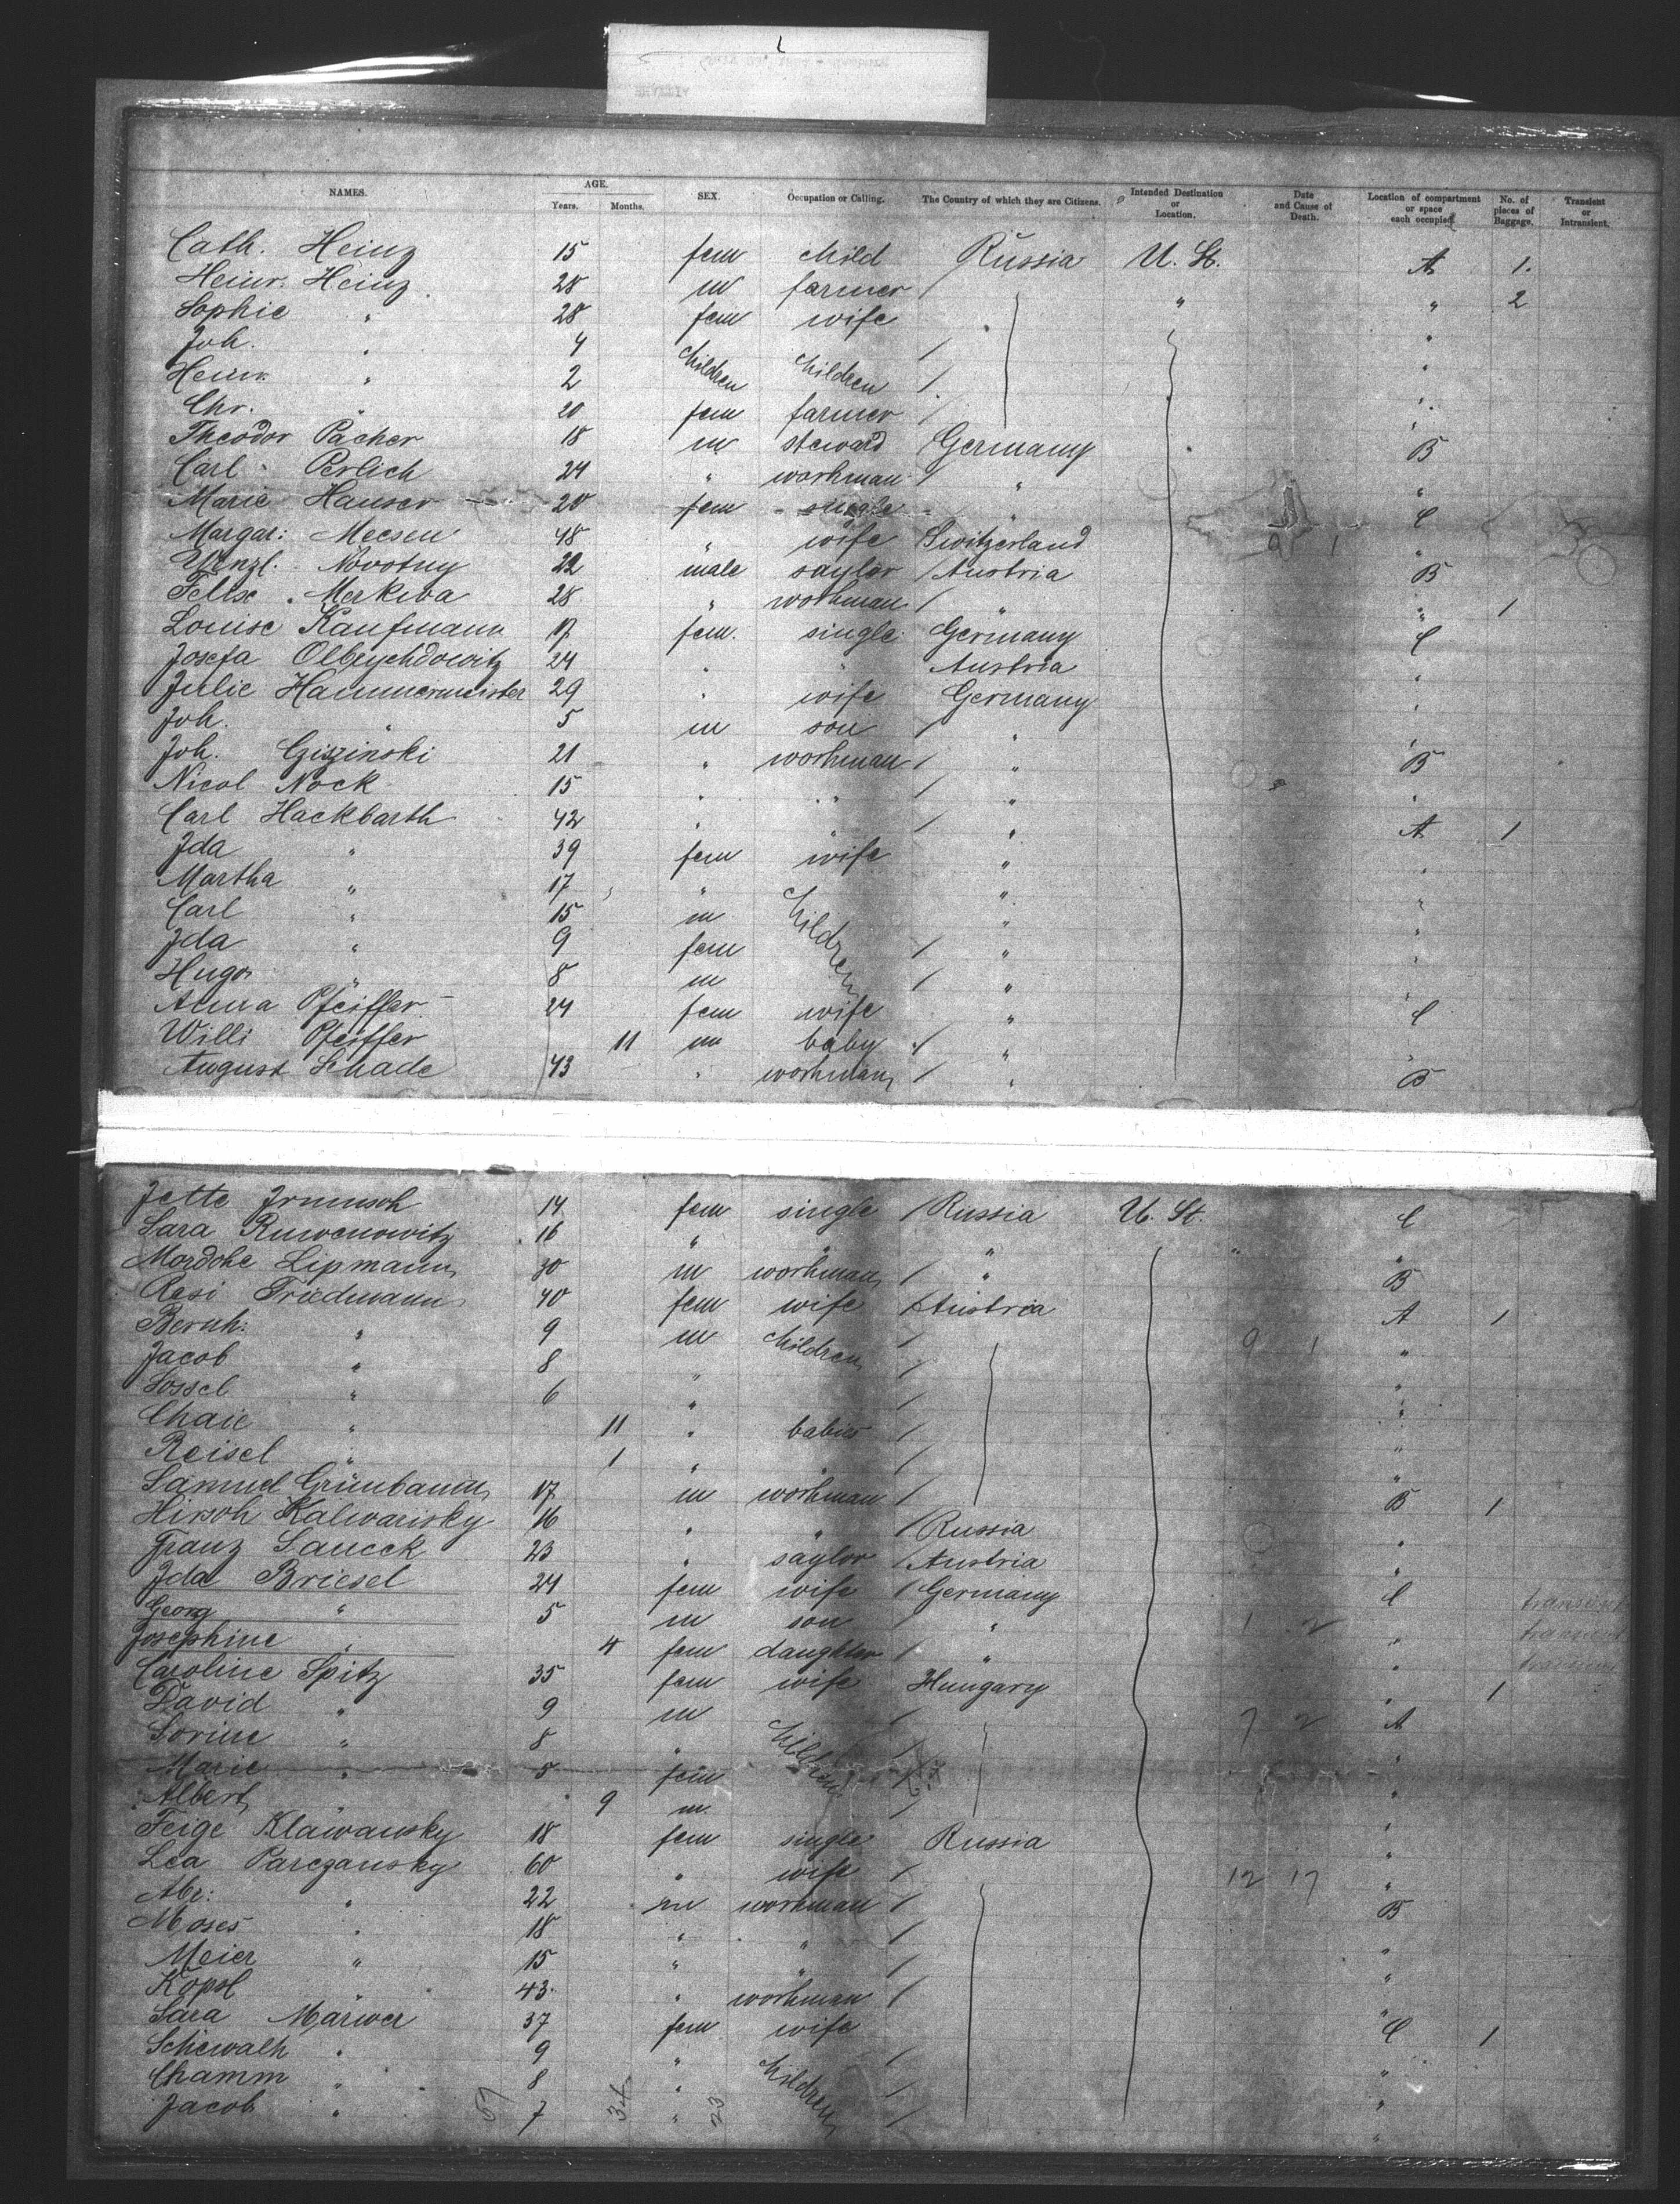 NAMES. AGE. Years. Months. SEX. Occupation or Calling. The Country of which they are Citizens. Intended Destination or Location. Date and Cause of Death. Location of compartment or space each occupied. No. of pieces of Baggage. Transient or Intransient.
Cath. Heinz 15 fem child Russia U. St. A 1.
Heinr. Heinz 28 m farmer / " " 2
Sophie " 28 fem wife "
Joh. " 4 Children Children / "
Heinr. " 2 / "
Chr. " 20 fem farmer / "
Theodor Pacher 18 m steward Germany B
Carl Perlich 24 " workman / " "
Marie Hauser 20 fem single " C
Margar: Meesen 48 " wife Switzerland 9 1 "
Wenzl. Novotny 22 male saylor / Austria B
Felix Merkwa 28 " workman / " " 1
Louise Kaufmann 17 fem. single Germany C
Josefa Olbrychdowitz 24 " " Austria "
Julie Hammermeister 29 " wife Germany "
Joh. " 5 m son / " "
Joh. Gziszinski 21 " workman / " B
Nicol Nock 15 " " / " "
Carl Hackbarth 42 " " / " A 1
Ida " 39 fem wife " "
Martha " 17 " Children " "
Carl " 15 m " "
Ida " 9 fem / " "
Hugo " 8 m / " "
Anna Pfeiffer 24 fem wife " C
Willi Pfeiffer 11 m baby / " "
August Schade 43 " workman / " B
Jette Irmusch 14 fem single / Russia U. St. C
Sara Ruwenowitz 16 " " " " "
Mordche Lipmann 30 m workman / " B
Resi Friedmann 40 fem wife / Austria A 1
Bernh: " 9 m Children / 9 1 "
Jacob " 8 " / "
Sossel " 6 " / "
Chaie " 11 " babies / "
Reisel " 1 " " / "
Samuel Grünbaum 17 m workman / B 1
Hirsch Kalwarisky 16 " " / Russia "
Franz Saucek 23 " saylor / Austria "
Ida Briesel 24 fem wife / Germany C transient
Georg " 5 m son " 1 2 " transient
Josephine " 4 fem daughter / " " transient
Caroline Spitz 35 fem wife Hungary " 1
David " 9 m Children / 7 2 A
Sorine " 8 " / "
Marie " 5 fem / "
Albert " 9 m. / "
Feige Klawansky 18 fem single Russia "
Lea Parczansky 60 " wife / 12 17 "
Abr: " 22 m workman / B
Moses " 18 " " / "
Meier " 15 " " / "
Kopsl " 43 " workman / "
Sara Marwer 37 fem wife C 1
Schewalh " 9 " Children / "
Chamm " 8 " / "
Jacob " 7 " / "
34 23